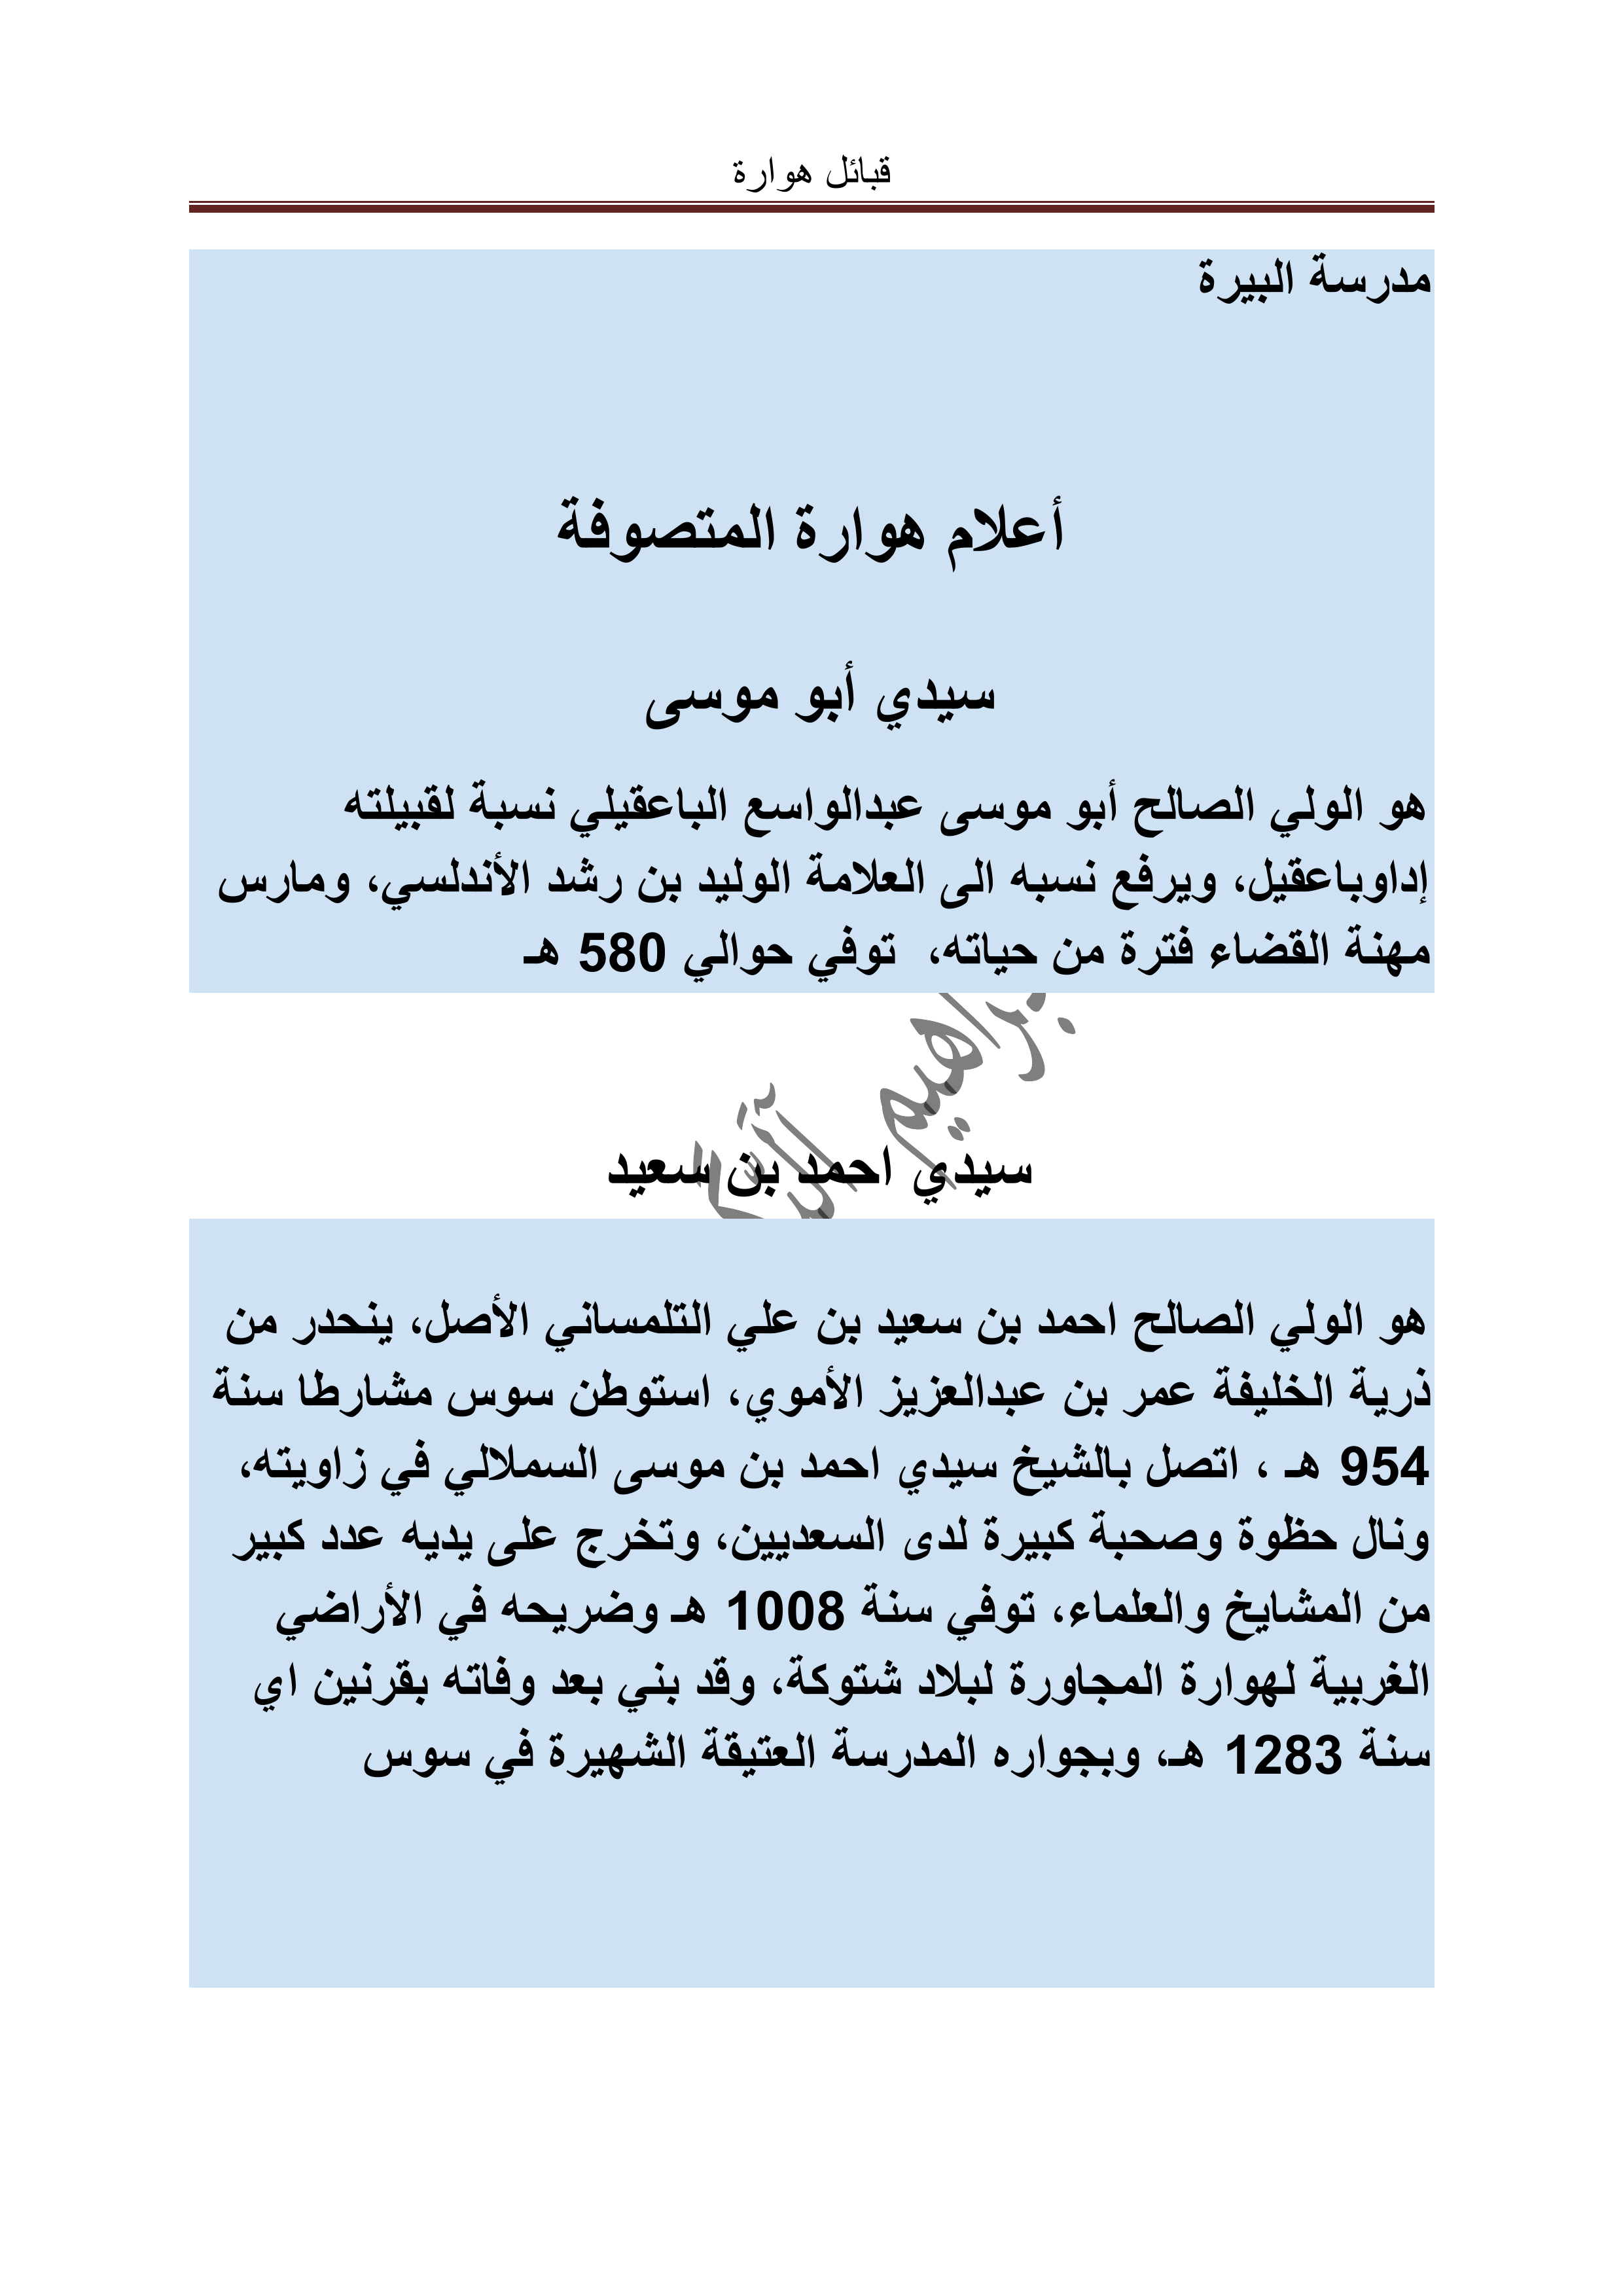 قبائل هوارة
مدرسة البيرة
أعلام هوارة المتصوفة
سيدي أبو موسى
هو الولي الصالح أبو موسى عبدالواسع الباعقيلي نسبة لقبيلته
إداوباعقيل، ويرفع نسبه الى العلامة الوليد بن رشد الأندلسي، ومارس
مهنة القضاء فترة من حياته، توفي حوالي 580 هـ
سيدي احمد بن سعيد
هو الولي الصالح احمد بن سعيد بن علي التلمساني الأصل، ينحدر من
ذرية الخليفة عمر بن عبدالعزيز الأموي، استوطن سوس مشارطا سنة
954 هـ ، اتصل بالشيخ سيدي احمد بن موسى السملالي في زاويته،
ونال حظوة وصحبة كبيرة لدى السعديين، وتخرج على يديه عدد كبير
من المشايخ والعلماء، توفي سنة 1008 هـ وضريحه في الأراضي
الغربية لهوارة المجاورة لبلاد شتوكة، وقد بني بعد وفاته بقرنين اي
سنة 1283 هـ، وبجواره المدرسة العتيقة الشهيرة في سوس